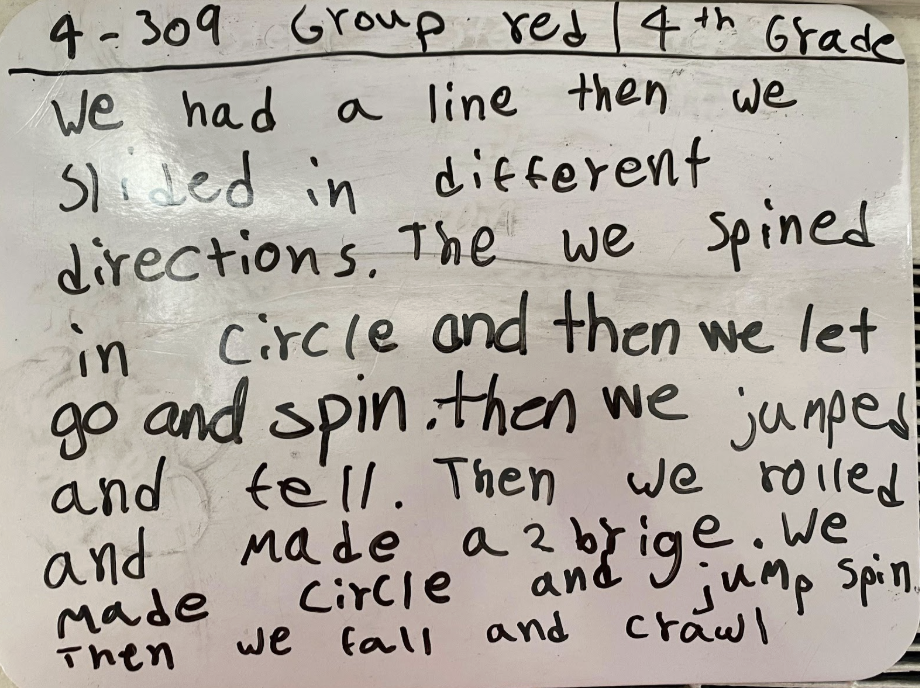 4-309 Group red | 4th Grade
We had a line then we
slided in different
directions. The we spined
in circle and then we let
go and spin. then we jumped
and fell. Then we rolled
and made a 2 brige. We
made circle and jump spin.
Then we fall and crawl